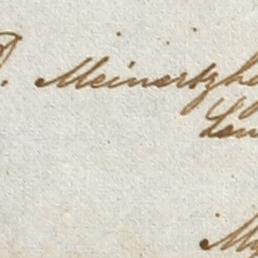 D. Meinertzha
Lon
My